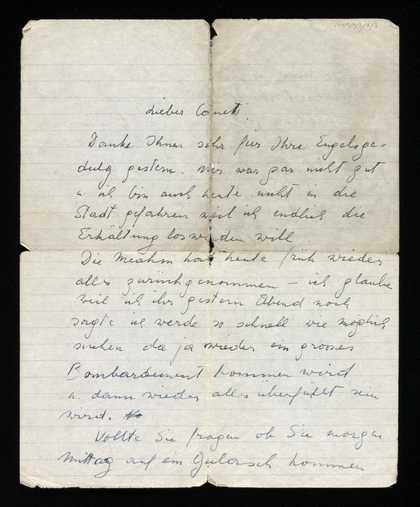 Lieber Conett,
Danke Ihnen sehr für Ihre Engelsge-
dulg gestern. Mir war gar nicht gut
u. ich bin auch heute nicht in die
Stadt gefahren weil ich endlich die
Erkältung loswerden will
Die hat heute früh wieder
alles zurückgenommen – ich glaube
weil ich ihr gestern Abend noch
sagte ich werde so schnell wie möglich
suchen da ja wieder ein grosses
Bombardement kommen wird
u. dann wieder alles überfüllt sein
wird.
Wollte Sie fragen ob Sie morgen
Mittag auf ein kommen